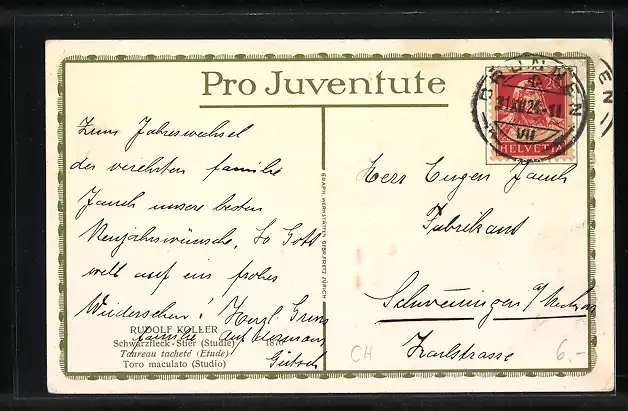 Pro Juventute
BRUNNEN
31.XII.24-11
VII
HELVETIA
Zum Jahreswechsel
der verehrten familie
Jauch unsere besten
Neujahrswünsche. So Gott
will auf ein frohes
Wiedersehen! Herzl. Gruss
familie
Herr Eugen Jauch
Fabrikant
Schwenningen a/Neckar
Karlstrasse
GRAPH. WERKSTÄTTEN GEBR. FRETZ ZÜRICH
RUDOLF KOLLER
Schwarzfleck-Stier (Studie)
Taureau tacheté (Etude)
Toro maculato (Studio)
CH
6.-